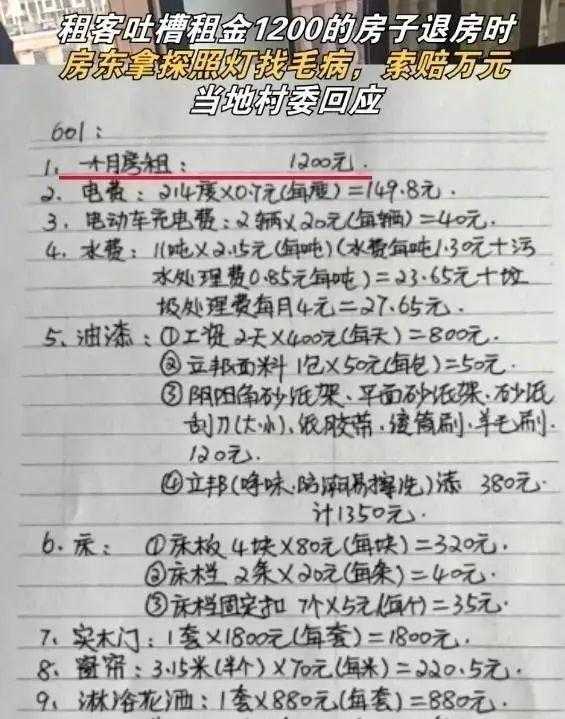 租客吐槽租金1200的房子退房时
房东拿探照灯找毛病，索赔万元
当地村委回应
601：
1、一个月房租： 1200元.
2、电费：214度×0.7元(每度)＝149.8元.
3、电动车充电费：2辆×20元(每辆)＝40元.
4、水费：11吨×2.15元(每吨)(水费每吨1.30元＋污
水处理费0.85元每吨)＝23.65元＋垃
圾处理费每月4元＝27.65元.
5、油漆：①工资 2天×400元(每天)＝800元.
②立邦面料 1包×50元(每包)＝50元.
③阴阳角砂纸架、平面砂纸架、砂纸
刮刀(大小)、纸胶带、滚筒刷、羊毛刷.
120元.
④立邦(净味、防潮易擦洗)漆 380元.
计1350元.
6、床：①床板 4块×80元(每块)＝320元.
②床栏 2条×20元(每条)＝40元.
③床栏固定扣 7个×5元(每个)＝35元.
7、实木门：1套×1800元(每套)＝1800元.
8、窗帘：3.15米(半个)×70元(每米)＝220.5元.
9、淋浴花洒：1套×880元(每套)＝880元.